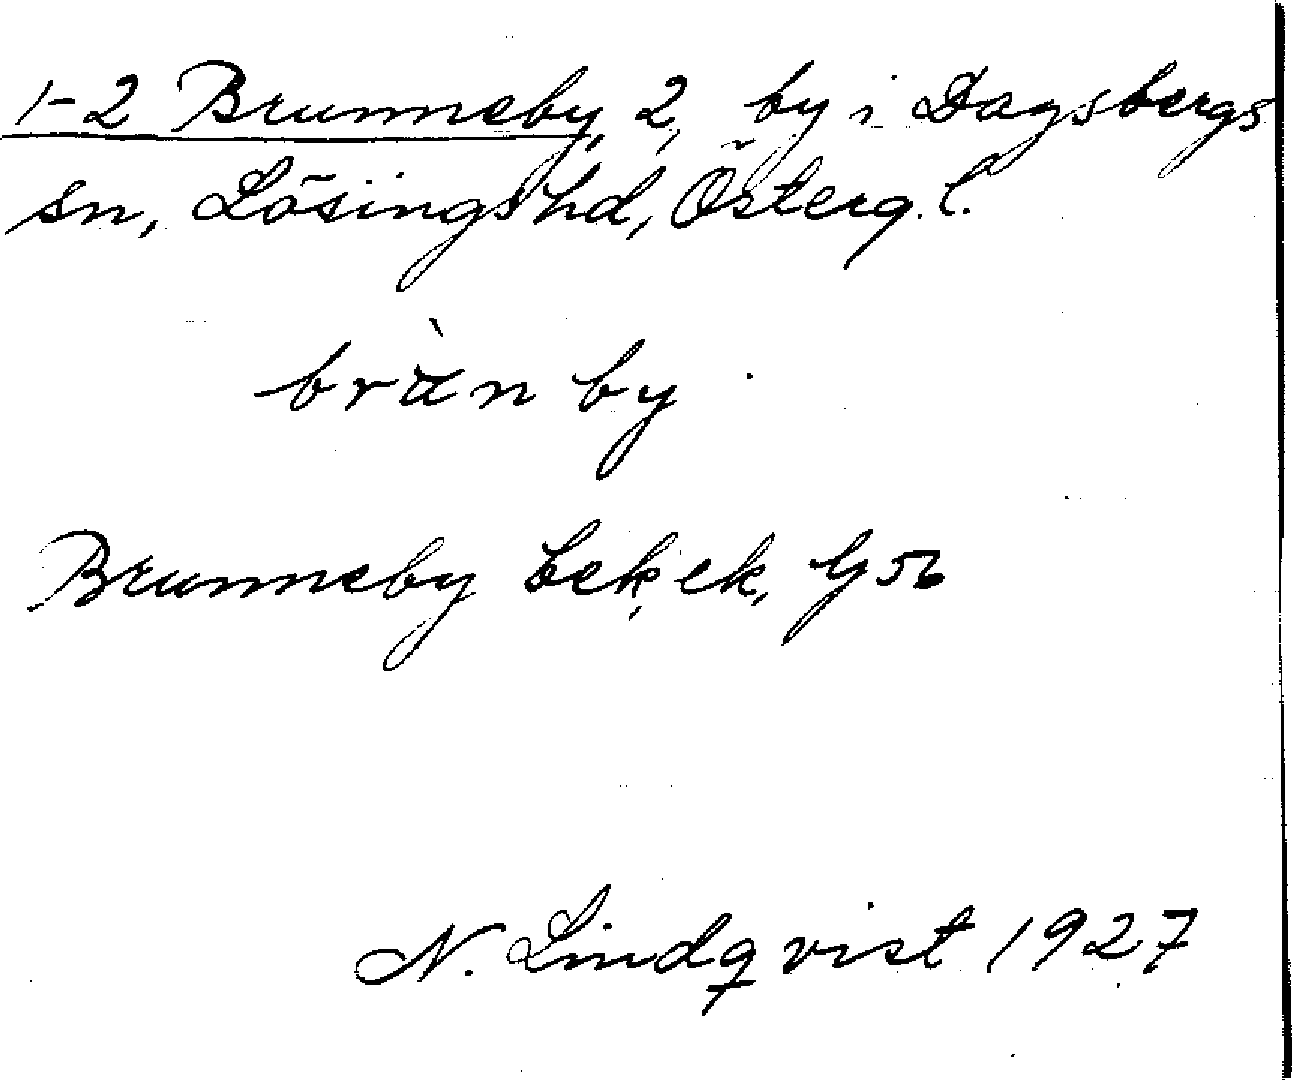 1-2 Brunneby, 2, by i Dagsbergs
sn, Lösings hd, Österg. l.
brùn by
Brunneby bek, ek, G 56
N. Lindqvist 1927